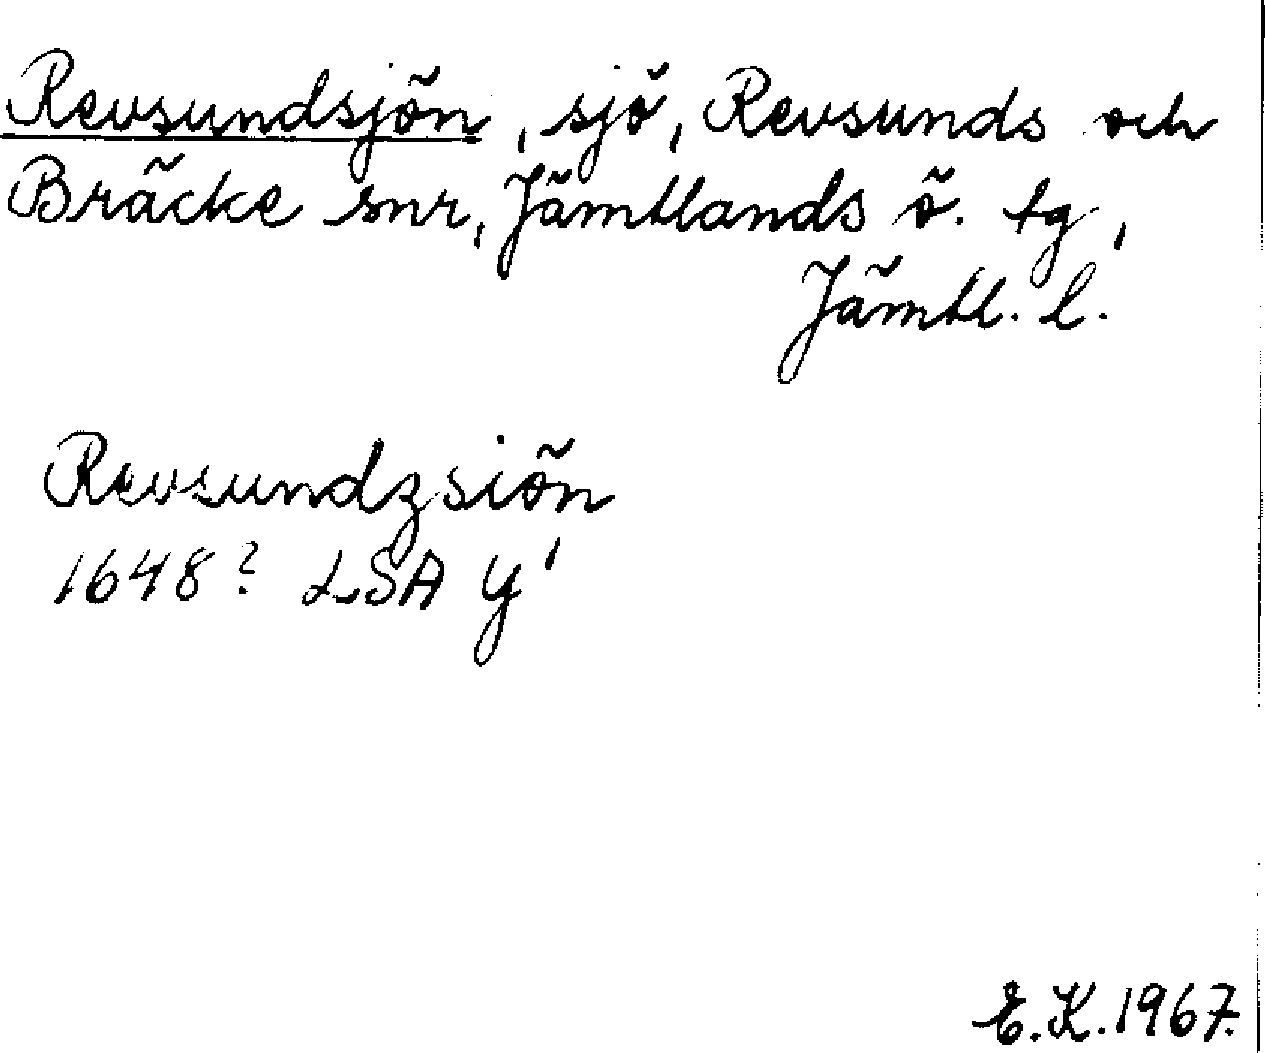 Revsundsjön, sjö, Revsunds och
Bräcke snr, Jämtlands ö. tg,
Jämtl. l.
Revsundzsiön
1648? LSA Y'
E.K. 1967.